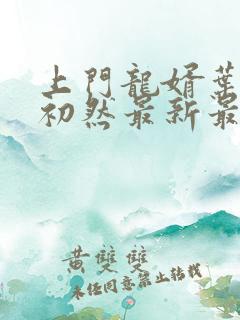 上門龍婿葉
初然最新最
黃雙雙
未任同意禁止转载